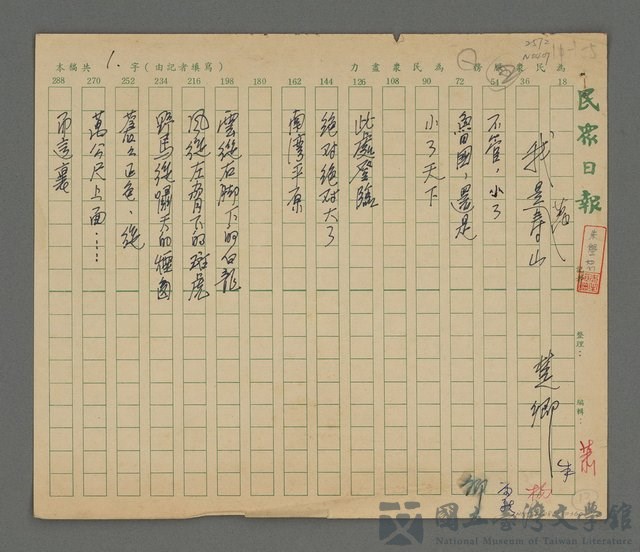 2572
N0009
本稿共 1. 字(由記者填寫) 為民眾盡力 為民眾服務
288 270 252 234 216 198 180 162 144 126 108 90 72 54 36 18
民眾日報
整理：
編輯：
我是壽山
楚卿
不管，小了
魯國，還是
小了天下
此處登臨
絕對絕對大了
南灣平原
雲從右脚下的白龍
風從左脅下的斑虎
野馬從嘯天的煙囪
蒼蒼正色、從
萬公尺上面……
而這裏
國立臺灣文學館
National Museum of Taiwan Literature